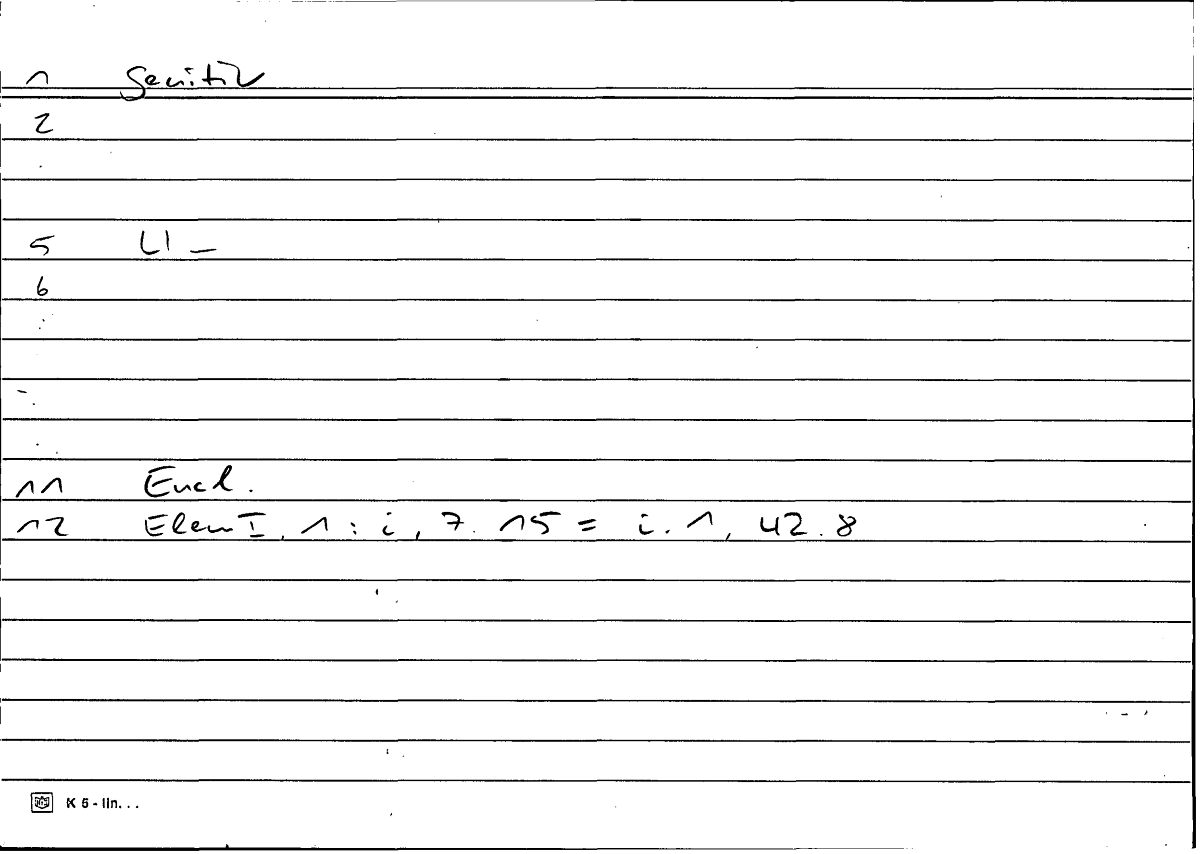 1 Genitiv
2
5 U1 _
6
11 Eucl.
12 Elem I, 1 : i, 7. 15 = i. 1, 42. 8
K 5 - lin. . .